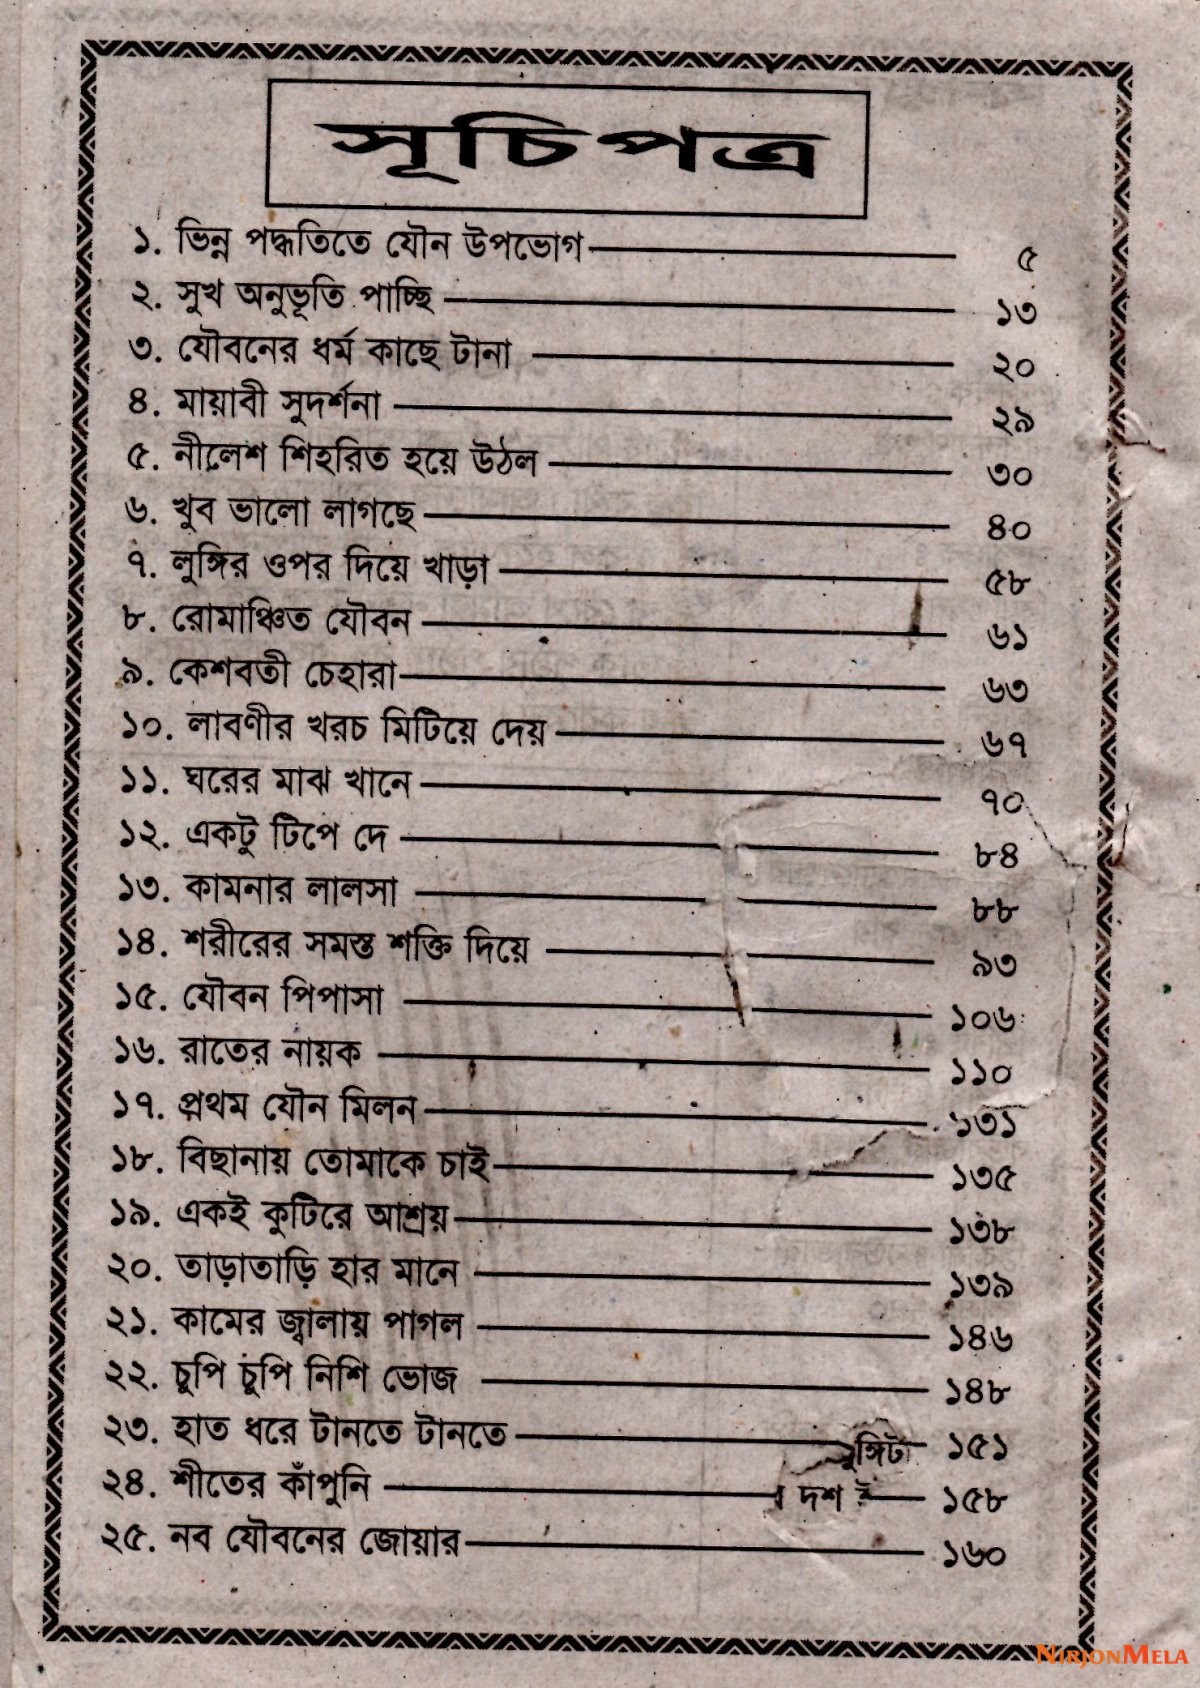 সূচিপত্র
১. ভিন্ন পদ্ধতিতে যৌন উপভোগ ৫
২. সুখ অনুভূতি পাচ্ছি ১৩
৩. যৌবনের ধর্ম কাছে টানা ২০
৪. মায়াবী সুদর্শনা ২৯
৫. নীলেশ শিহরিত হয়ে উঠল ৩০
৬. খুব ভালো লাগছে ৪০
৭. লুঙ্গির ওপর দিয়ে খাড়া ৫৮
৮. রোমাঞ্চিত যৌবন ৬১
৯. কেশবতী চেহারা ৬৩
১০. লাবণীর খরচ মিটিয়ে দেয় ৬৭
১১. ঘরের মাঝ খানে ৭০
১২. একটু টিপে দে ৮৪
১৩. কামনার লালসা ৮৮
১৪. শরীরের সমস্ত শক্তি দিয়ে ৯৩
১৫. যৌবন পিপাসা ১০৬
১৬. রাতের নায়ক ১১০
১৭. প্রথম যৌন মিলন ১৩১
১৮. বিছানায় তোমাকে চাই ১৩৫
১৯. একই কুটিরে আশ্রয় ১৩৮
২০. তাড়াতাড়ি হার মানে ১৩৯
২১. কামের জ্বালায় পাগল ১৪৬
২২. চুপি চুপি নিশি ভোজ ১৪৮
২৩. হাত ধরে টানতে টানতে ১৫১
২৪. শীতের কাঁপুনি দশ ১৫৮
২৫. নব যৌবনের জোয়ার ১৬০
NIRJONMELA